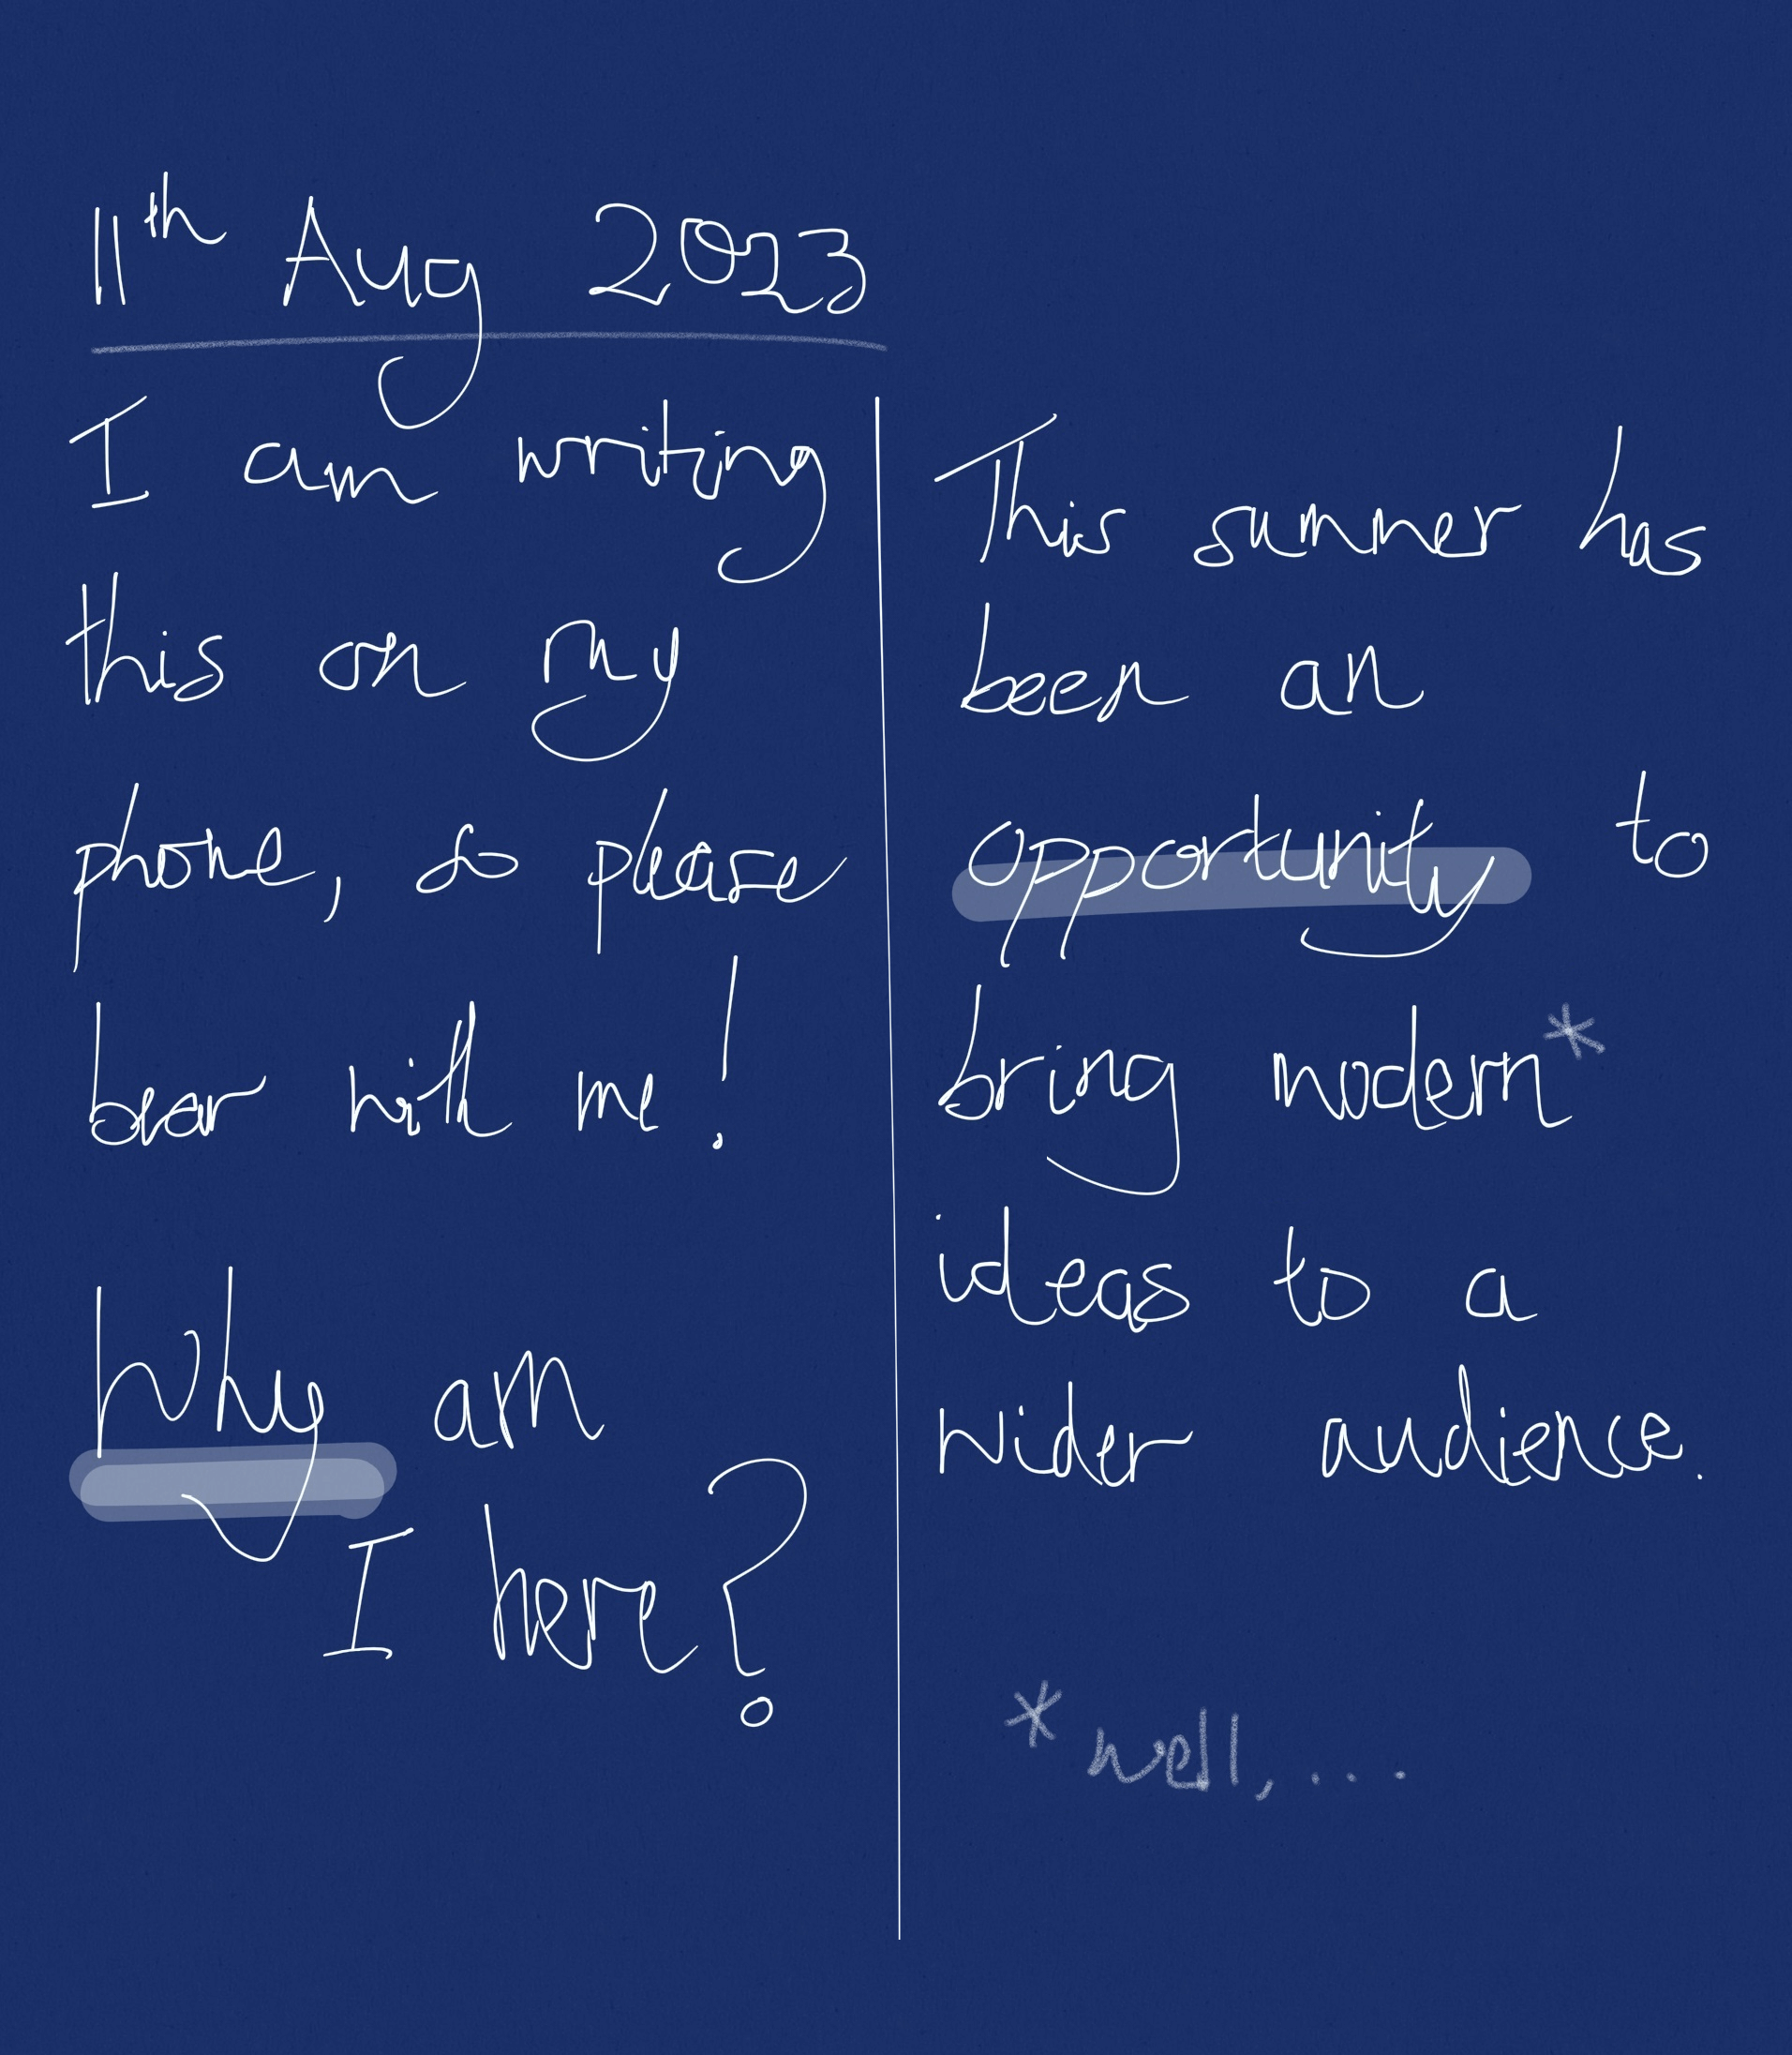 11th Aug 2023
I am writing
this on my
phone, so please
bear with me!
Why am
I here?
This summer has
been an
opportunity to
bring modern*
ideas to a
wider audience.
*well, ...